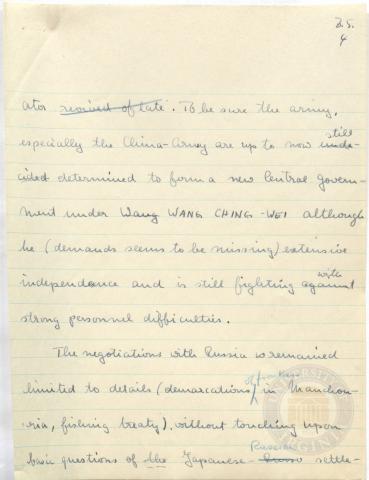 Z.S.
4
ator revived of late. To be sure the army,
still
especially the China-Army are up to now unde-
cided determined to form a new Central Govern-
ment under Wang WANG CHING-WEI although
he (demands seems to be missing) extensive
with
independence and is still fighting against
strong personnel difficulties.
The negotiations with Russia w remained
of frontiers
limited to details (demarcations) in Manchou-
ria, fishing treaty), without touching upon
Russian
basic questions of the Japanese-Russo settle-